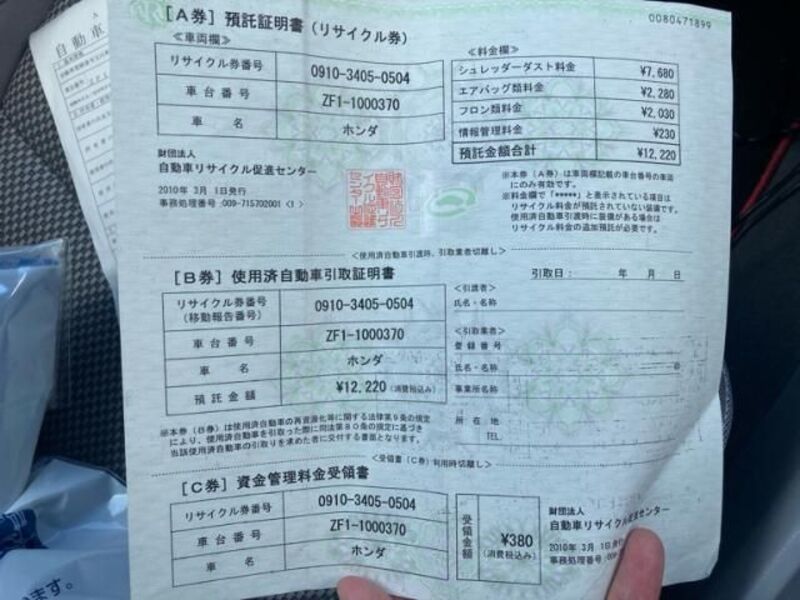 自動車
0080471899
[A券] 預託証明書(リサイクル券)
≪車両欄≫
リサイクル券番号 0910-3405-0504
車台番号 ZF1-1000370
車名 ホンダ
≪料金欄≫
シュレッダーダスト料金 ¥7,680
エアバッグ類料金 ¥2,280
フロン類料金 ¥2,030
情報管理料金 ¥230
預託金額合計 ¥12,220
財団法人
自動車リサイクル促進センター
2010年 3月 1日発行
事務処理番号:009-715702001 (1)
※本券(A券)は車両欄記載の車台番号の車両
にのみ有効です。
※料金欄で「*****」と表示されている項目は
リサイクル料金が預託されていない装備です。
使用済自動車引渡時に装備がある場合は
リサイクル料金の追加預託が必要です。
<使用済自動車引渡時、引取業者切離し>
[B券] 使用済自動車引取証明書
引取日: 年 月 日
リサイクル券番号
(移動報告番号) 0910-3405-0504
車台番号 ZF1-1000370
車名 ホンダ
預託金額 ¥12,220 (消費税込み)
<引渡者>
氏名・名称
<引取業者>
登録番号
氏名・名称
事業所名称
所在地
TEL
※本券(B券)は使用済自動車の再資源化等に関する法律第9条の規定
により、使用済自動車を引取った際に同法第80条の規定に基づき
当該使用済自動車の引取りを求めた者に交付する書面となります。
<受領書(C券)利用時切離し>
[C券] 資金管理料金受領書
リサイクル券番号 0910-3405-0504
車台番号 ZF1-1000370
車名 ホンダ
受領金額 ¥380
(消費税込み)
財団法人
自動車リサイクル促進センター
2010年 3月 1日発行
事務処理番号:009-
います。